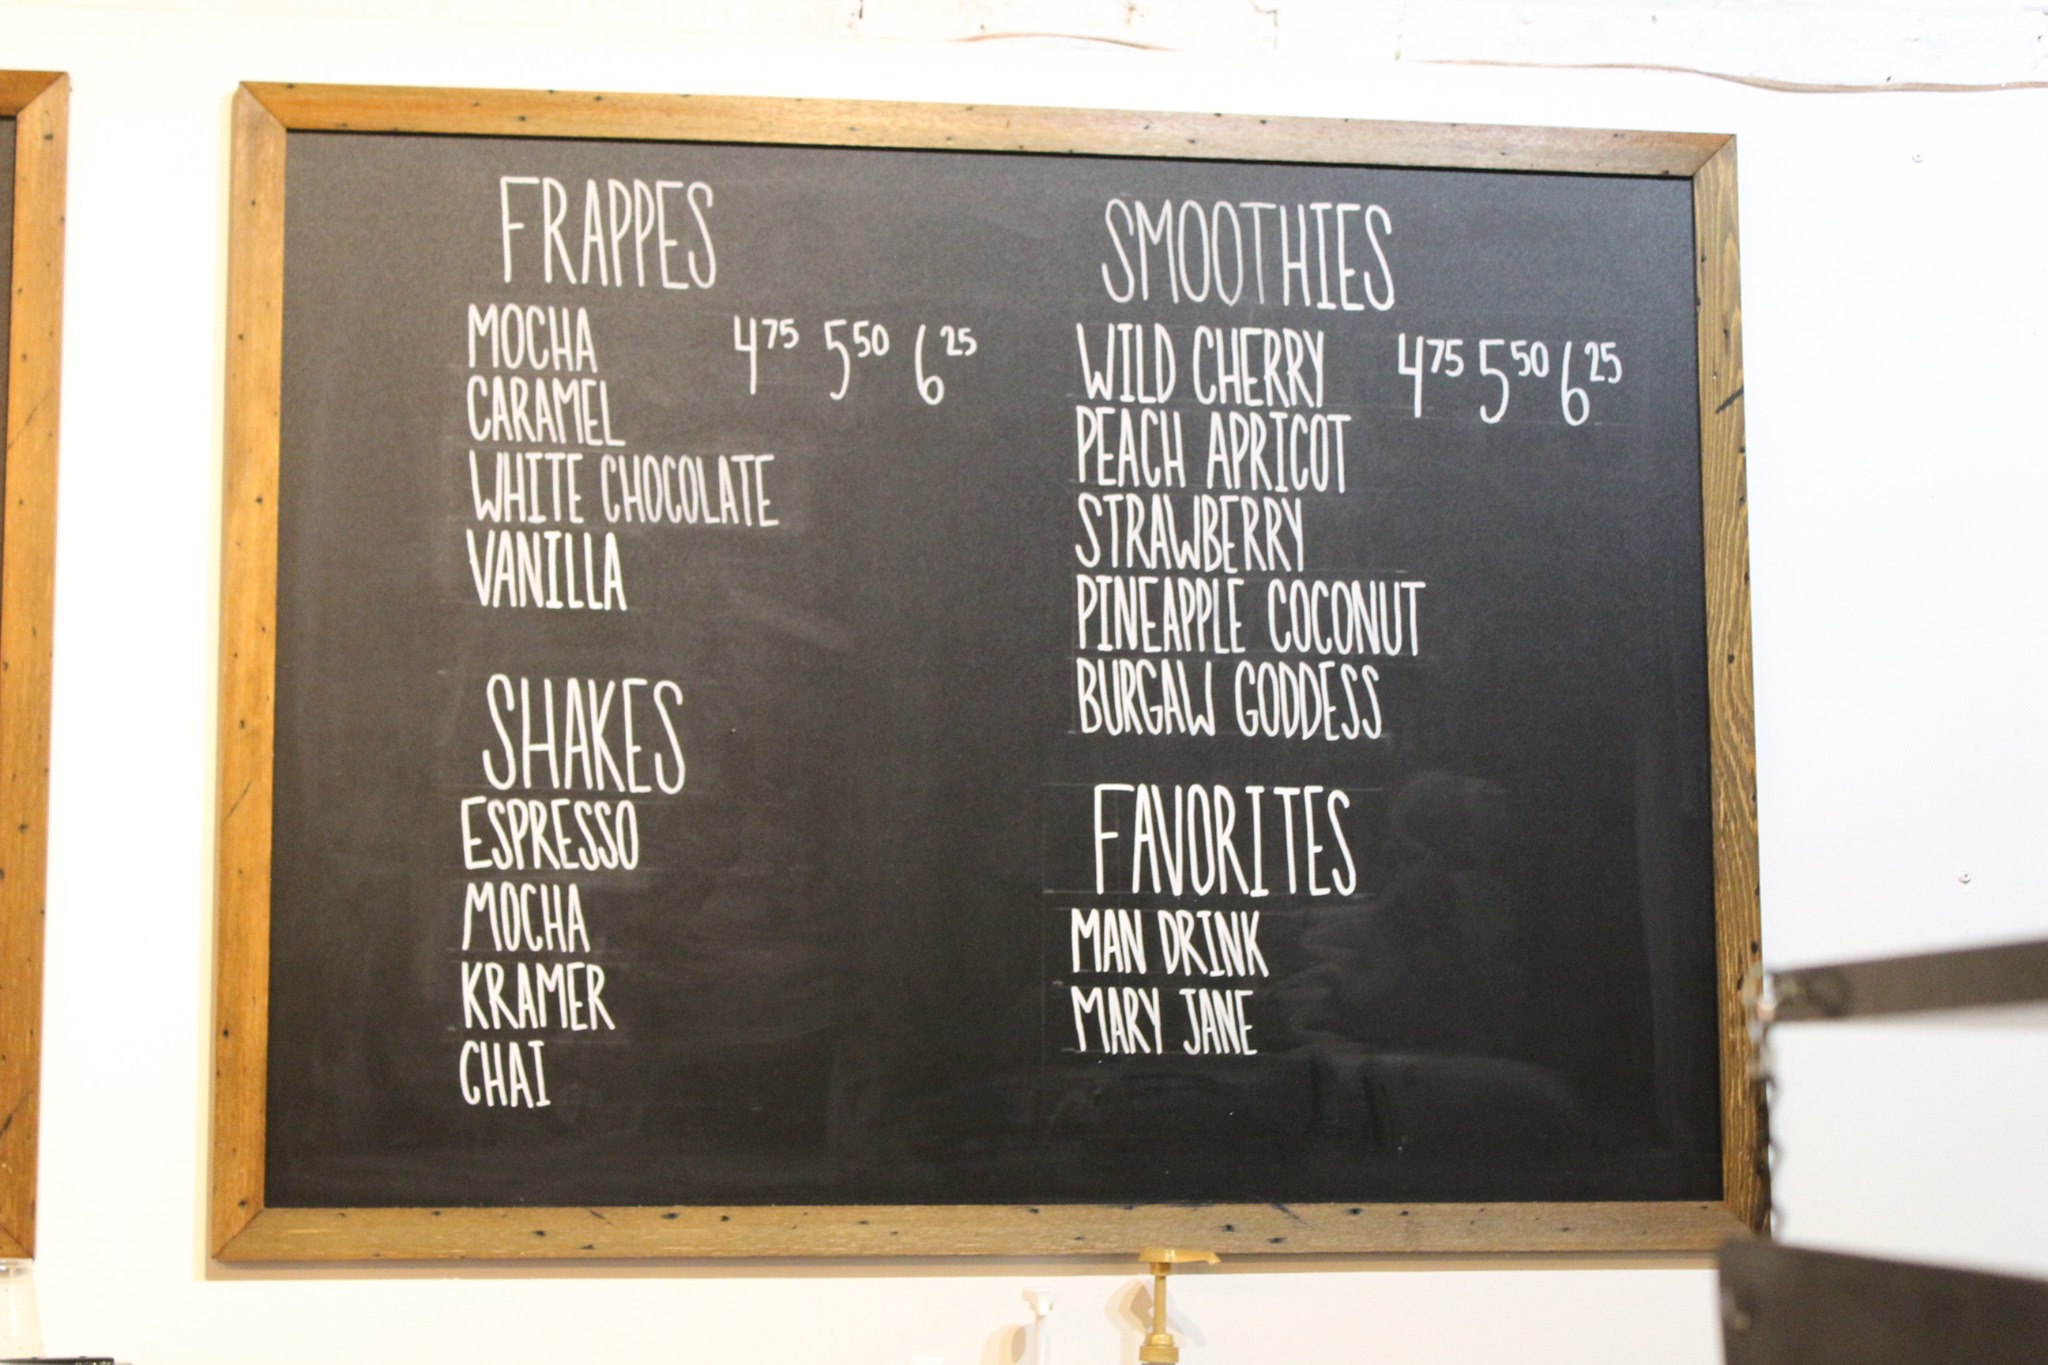 FRAPPES
MOCHA 4.75 5.50 6.25
CARAMEL
WHITE CHOCOLATE
VANILLA
SHAKES
ESPRESSO
MOCHA
KRAMER
CHAI
SMOOTHIES
WILD CHERRY 4.75 5.50 6.25
PEACH APRICOT
STRAWBERRY
PINEAPPLE COCONUT
BURGAW GODDESS
FAVORITES
MAN DRINK
MARY JANE